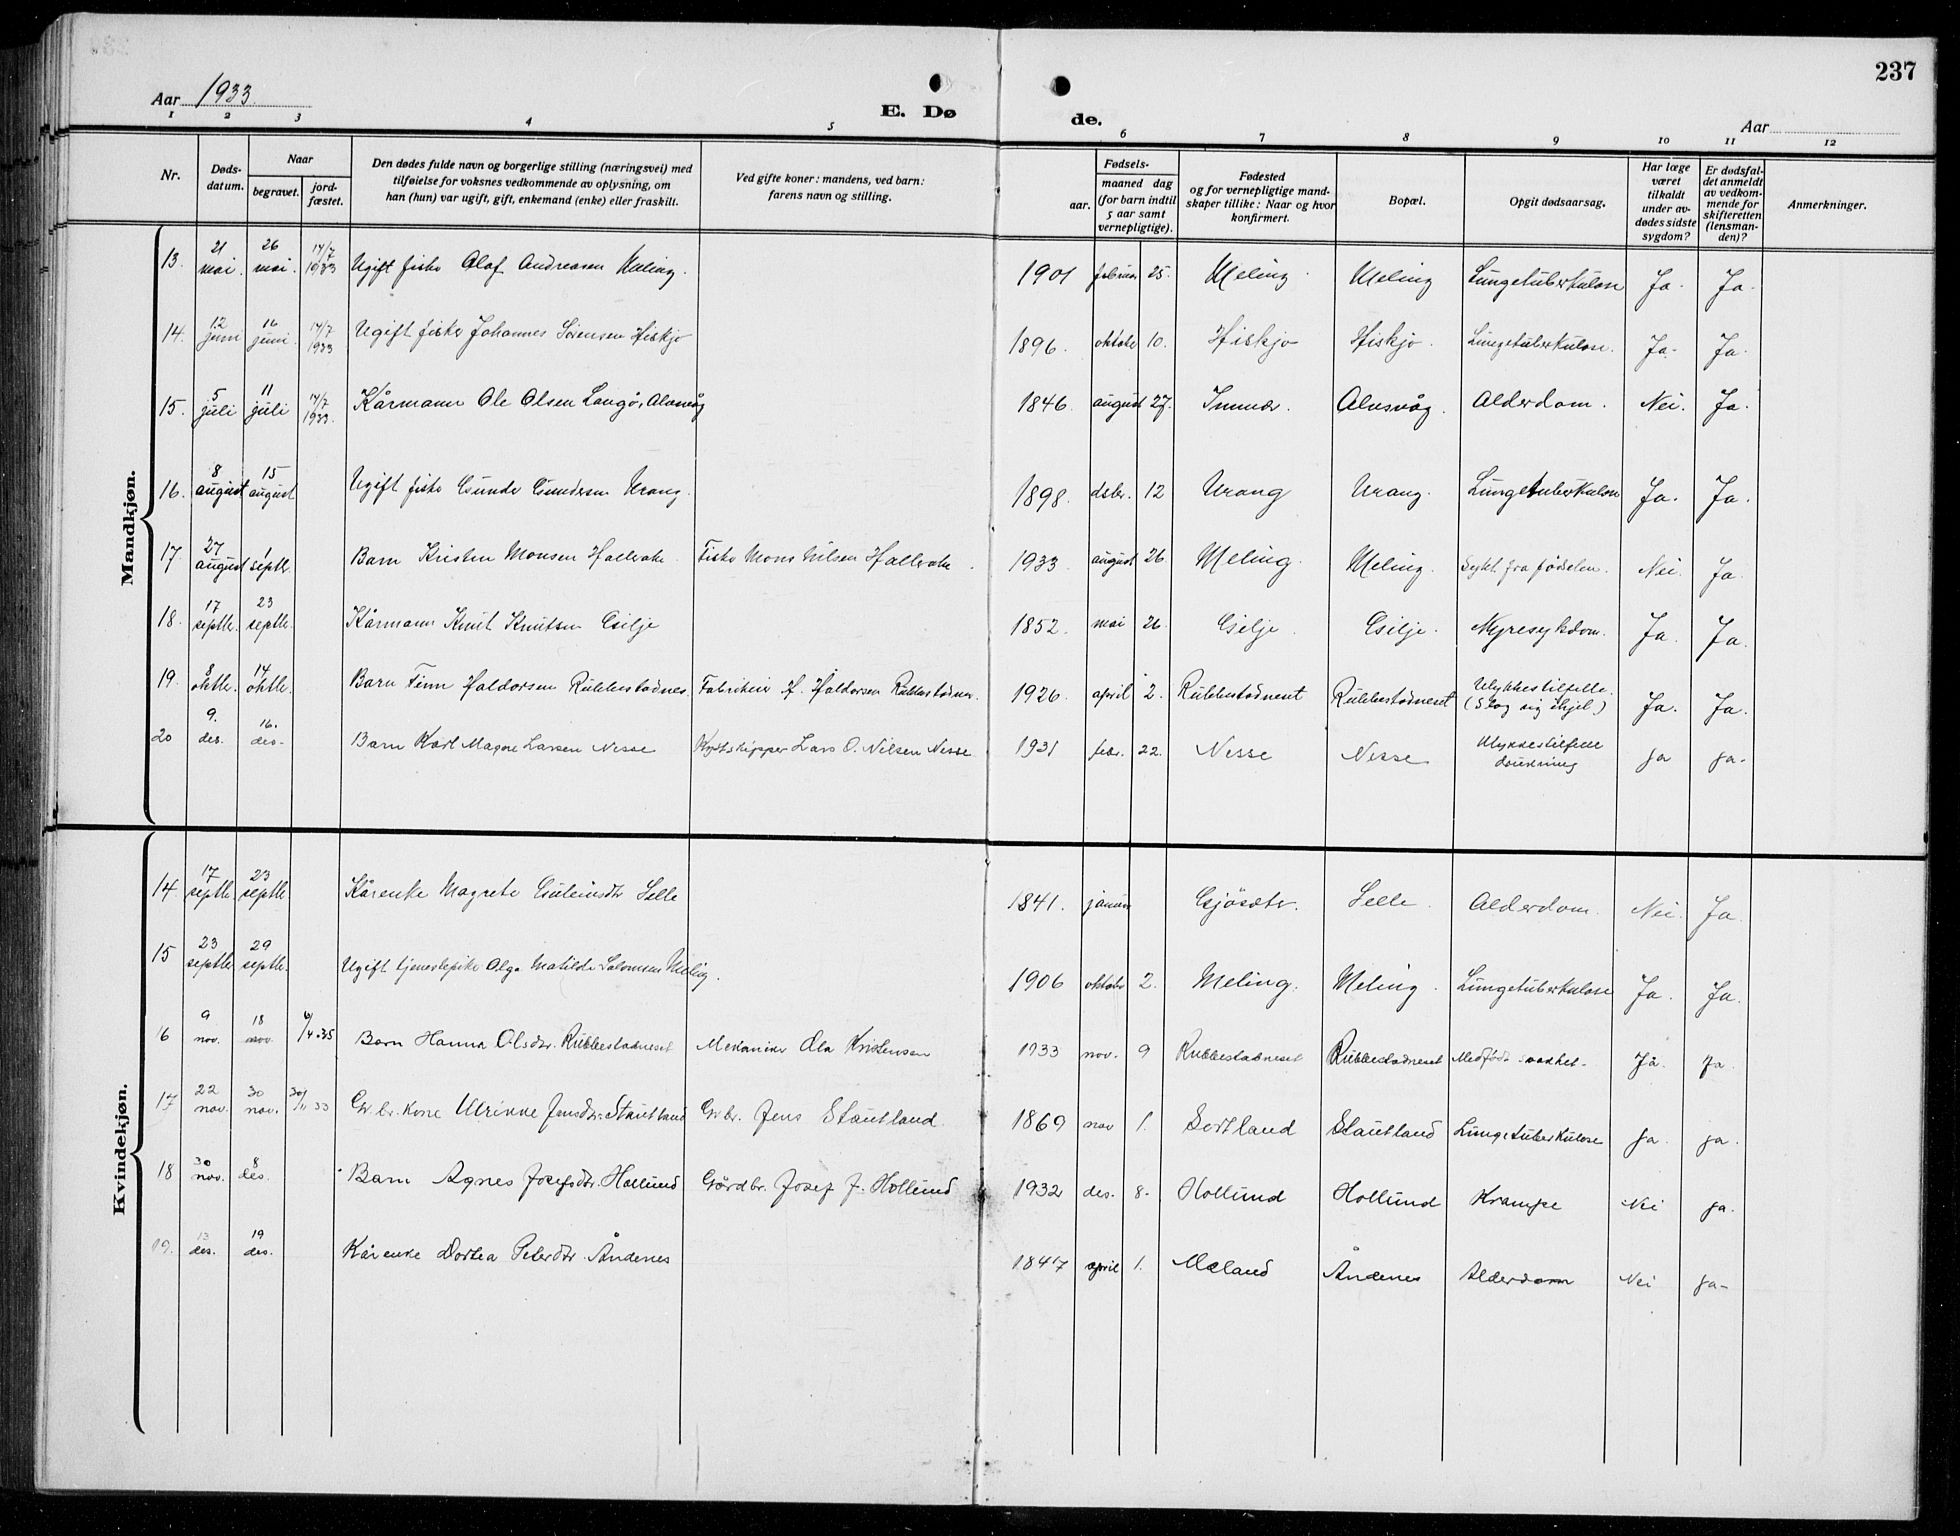 237
Aar 1933.
E. Døde.
Aar
1 2 3 4 5 6 7 8 9 10 11 12
Nr.
Dødsdatum.
Naar
begravet.
jordfæstet.
Den dødes fulde navn og borgerlige stilling (næringsvei) med
tilføielse for voksnes vedkommende av oplysning, om
han (hun) var ugift, gift, enkemand (enke) eller fraskilt.
Ved gifte koner: mandens, ved barn:
farens navn og stilling.
Fødsels-
aar.
maaned dag
(for barn indtil
5 aar samt
vernepligtige).
Fødested
og for vernepligtige mand-
skaper tillike: Naar og hvor
konfirmert.
Bopæl.
Opgit dødsaarsag.
Har læge
været
tilkaldt
under av-
dødes sidste
sygdom?
Er dødsfal-
det anmeldt
av vedkom-
mende for
skifteretten
(lensman-
den)?
Anmerkninger.
Mandkjøn.
13. 21 mai. 26 mai. 14/7 1933 Ugift fisker Olaf Andreasen Meling. 1901 februar 25. Meling. Meling Lungetuberkulose Ja. Ja.
14. 12 juni 16 juni. 14/7 1933 Ugift fisker Johannes Sørensen Hiskjo 1896. oktober 10. Hiskjo Hiskjo. Lungetuberkulose. Ja. Ja.
15. 5 juli 11 juli 14/7 1933. Kårmann Ole Olsen Langø, Alvsvåg 1846. august 27. Innvær. Alvsvåg. Alderdom. Nei. Ja.
16. 8 august 15 august Ugift fisker Gunder Gundersen Urang. 1898. dsbr. 12 Urang Urang. Lungetuberkulose Ja. Ja.
17 27 august 1 septbr. Barn Kristen Monsen Hallvake. Fisker Mons Nilsen Hallvake. 1933. august 26. Meling. Meling. Sykt fra fødselen. Nei. Ja.
18. 17 septbr. 23 septbr. Kårmann Knut Knutsen Gilje 1852. mai 26. Gilje. Gilje. Nyresykdom. Ja. Ja.
19. 8 oktbr. 14 oktbr. Barn Finn Haldorsen Rubbestadnes. Fabrikeier H. Haldorsen Rubbestadnes. 1926. april 2. Rubbestadneset Rubbestadneset Ulykkestilfelle. (Slog sig ihjel.) Ja. Ja.
20 9. des. 16. des. Barn Karl Magne Larsen Nesse Kystskipper Lars O. Nilsen Nesse 1931 febr. 22. Nesse Nesse Ulykkestilfelle drukning ja ja.
Kvindekjøn.
14. 17 septbr. 23 septbr. Kårenke Magrete Guleiksdtr Selle 1841. januar Gjøsæter. Selle. Alderdom. Nei. Ja.
15 23 septbr. 29 septbr. Ugift tjenestepike Olga Matilde Salomsen Meling. 1906 oktober 2. Meling. Meling. Lungetuberkulose Ja. Ja.
16 9 nov. 18 nov. 6/4.35 Barn Hanna Olsdtr. Rubbestadneset Mekaniker Ola Kristensen 1933 nov. 9 Rubbestadneset Rubbestadneset Medfødt svakhet. Ja. ja.
17 22 nov. 30 nov. 30/11 33 Gr.br. kone Ulrikke Jensdtr. Stautland Gr.br. Jens Stautland. 1869 nov 1. Sortland Stautland Lungetuberkulose ja. ja.
18 30 nov. 8 des. Barn Agnes Josefsdtr. Hollund Gårdbr. Josef J. Hollund 1932 des. 8. Hollund Hollund Krampe Nei ja.
19. 13 des. 19 des. Kårenke Dortea Petersdtr. Åndenes 1847 april 1. Mæland Åndenes Alderdom Nei ja.